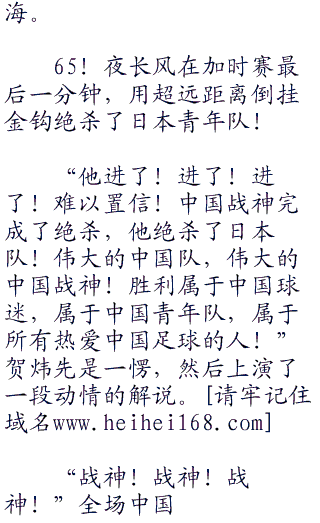 海。
65！夜长风在加时赛最
后一分钟，用超远距离倒挂
金钩绝杀了日本青年队！
“他进了！进了！进
了！难以置信！中国战神完
成了绝杀，他绝杀了日本
队！伟大的中国队，伟大的
中国战神！胜利属于中国球
迷，属于中国青年队，属于
所有热爱中国足球的人！”
贺炜先是一愣，然后上演了
一段动情的解说。[请牢记住
域名www.heihei168.com]
“战神！战神！战
神！”全场中国